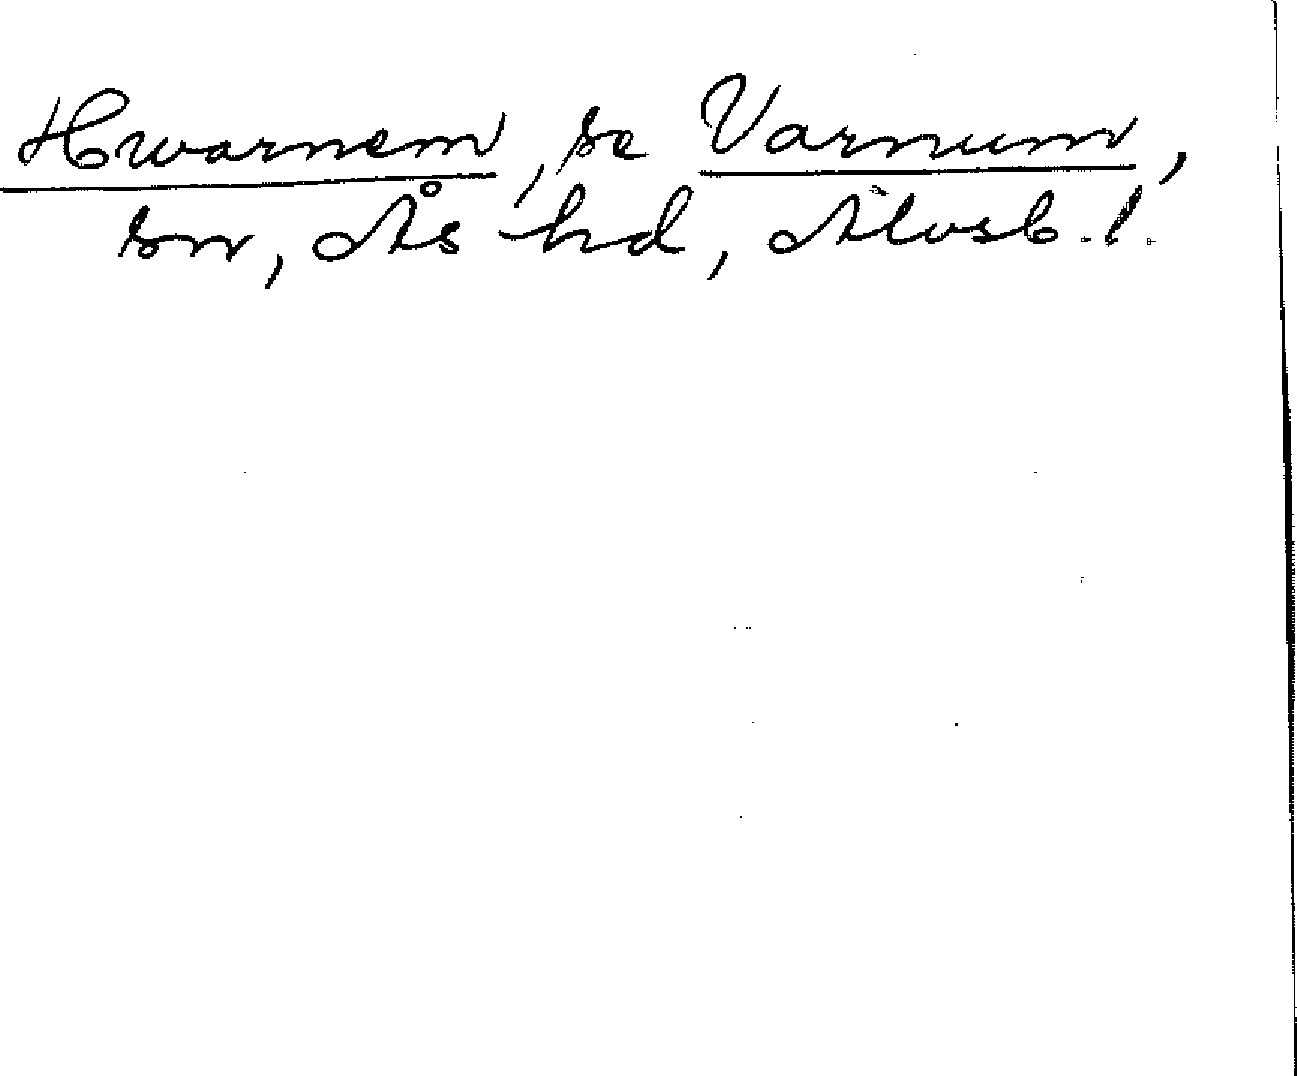 Hwarnem, se Varnum,
sn, Ås hd, Älvsb. l.